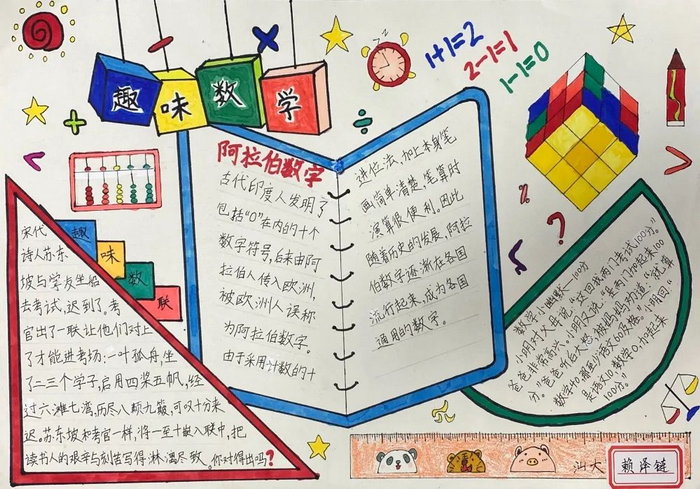 趣味数学
1+1=2
2-1=1
1-1=0
阿拉伯数字
古代印度人发明了
包括“0”在内的十个
数字符号,后来由阿
拉伯人传入欧洲,
被欧洲人误称
为阿拉伯数字。
由于采用计数的十
进位法,加上本身笔
画简单清楚,笔算时
演算很便利。因此
随着历史的发展,阿拉
伯数字逐渐在各国
流行起来,成为各国
通用的数字。
趣味数联
宋代
诗人苏东
坡与学友坐船
去考试,迟到了。考
官出了一联让他们对上
了才能进考场:一叶孤舟,坐
了二三个学子,启用四桨五帆,经
过六滩七湾,历尽八颠九簸,可叹十分来
迟。苏东坡和考官一样,将一至十嵌入联中,把
读书人的艰辛与刻苦写得淋漓尽致。你对得出吗?
数学小幽默—100分
小明对父母说:“这回我两门考试100分”。
爸爸非常高兴。小明又说:“是两门加起来100
分。”爸爸
数学40
是语文10,数学0,加起来
100分。”
%
?
汕大
赖泽链